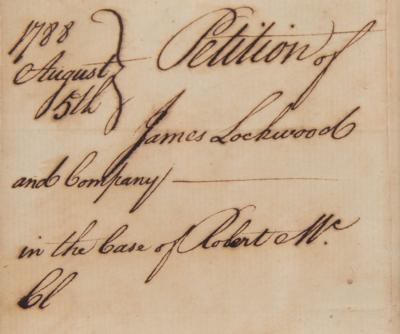 1788
August
5th
Petition of
James Lockwood
and Company
in the Case of Robert Mc.
Cl